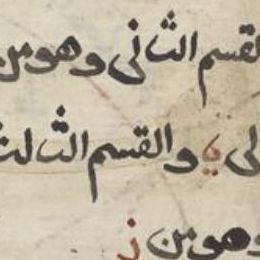 القسم الثانى وهو من
لى ى والقسم الثالث
وهو من ز